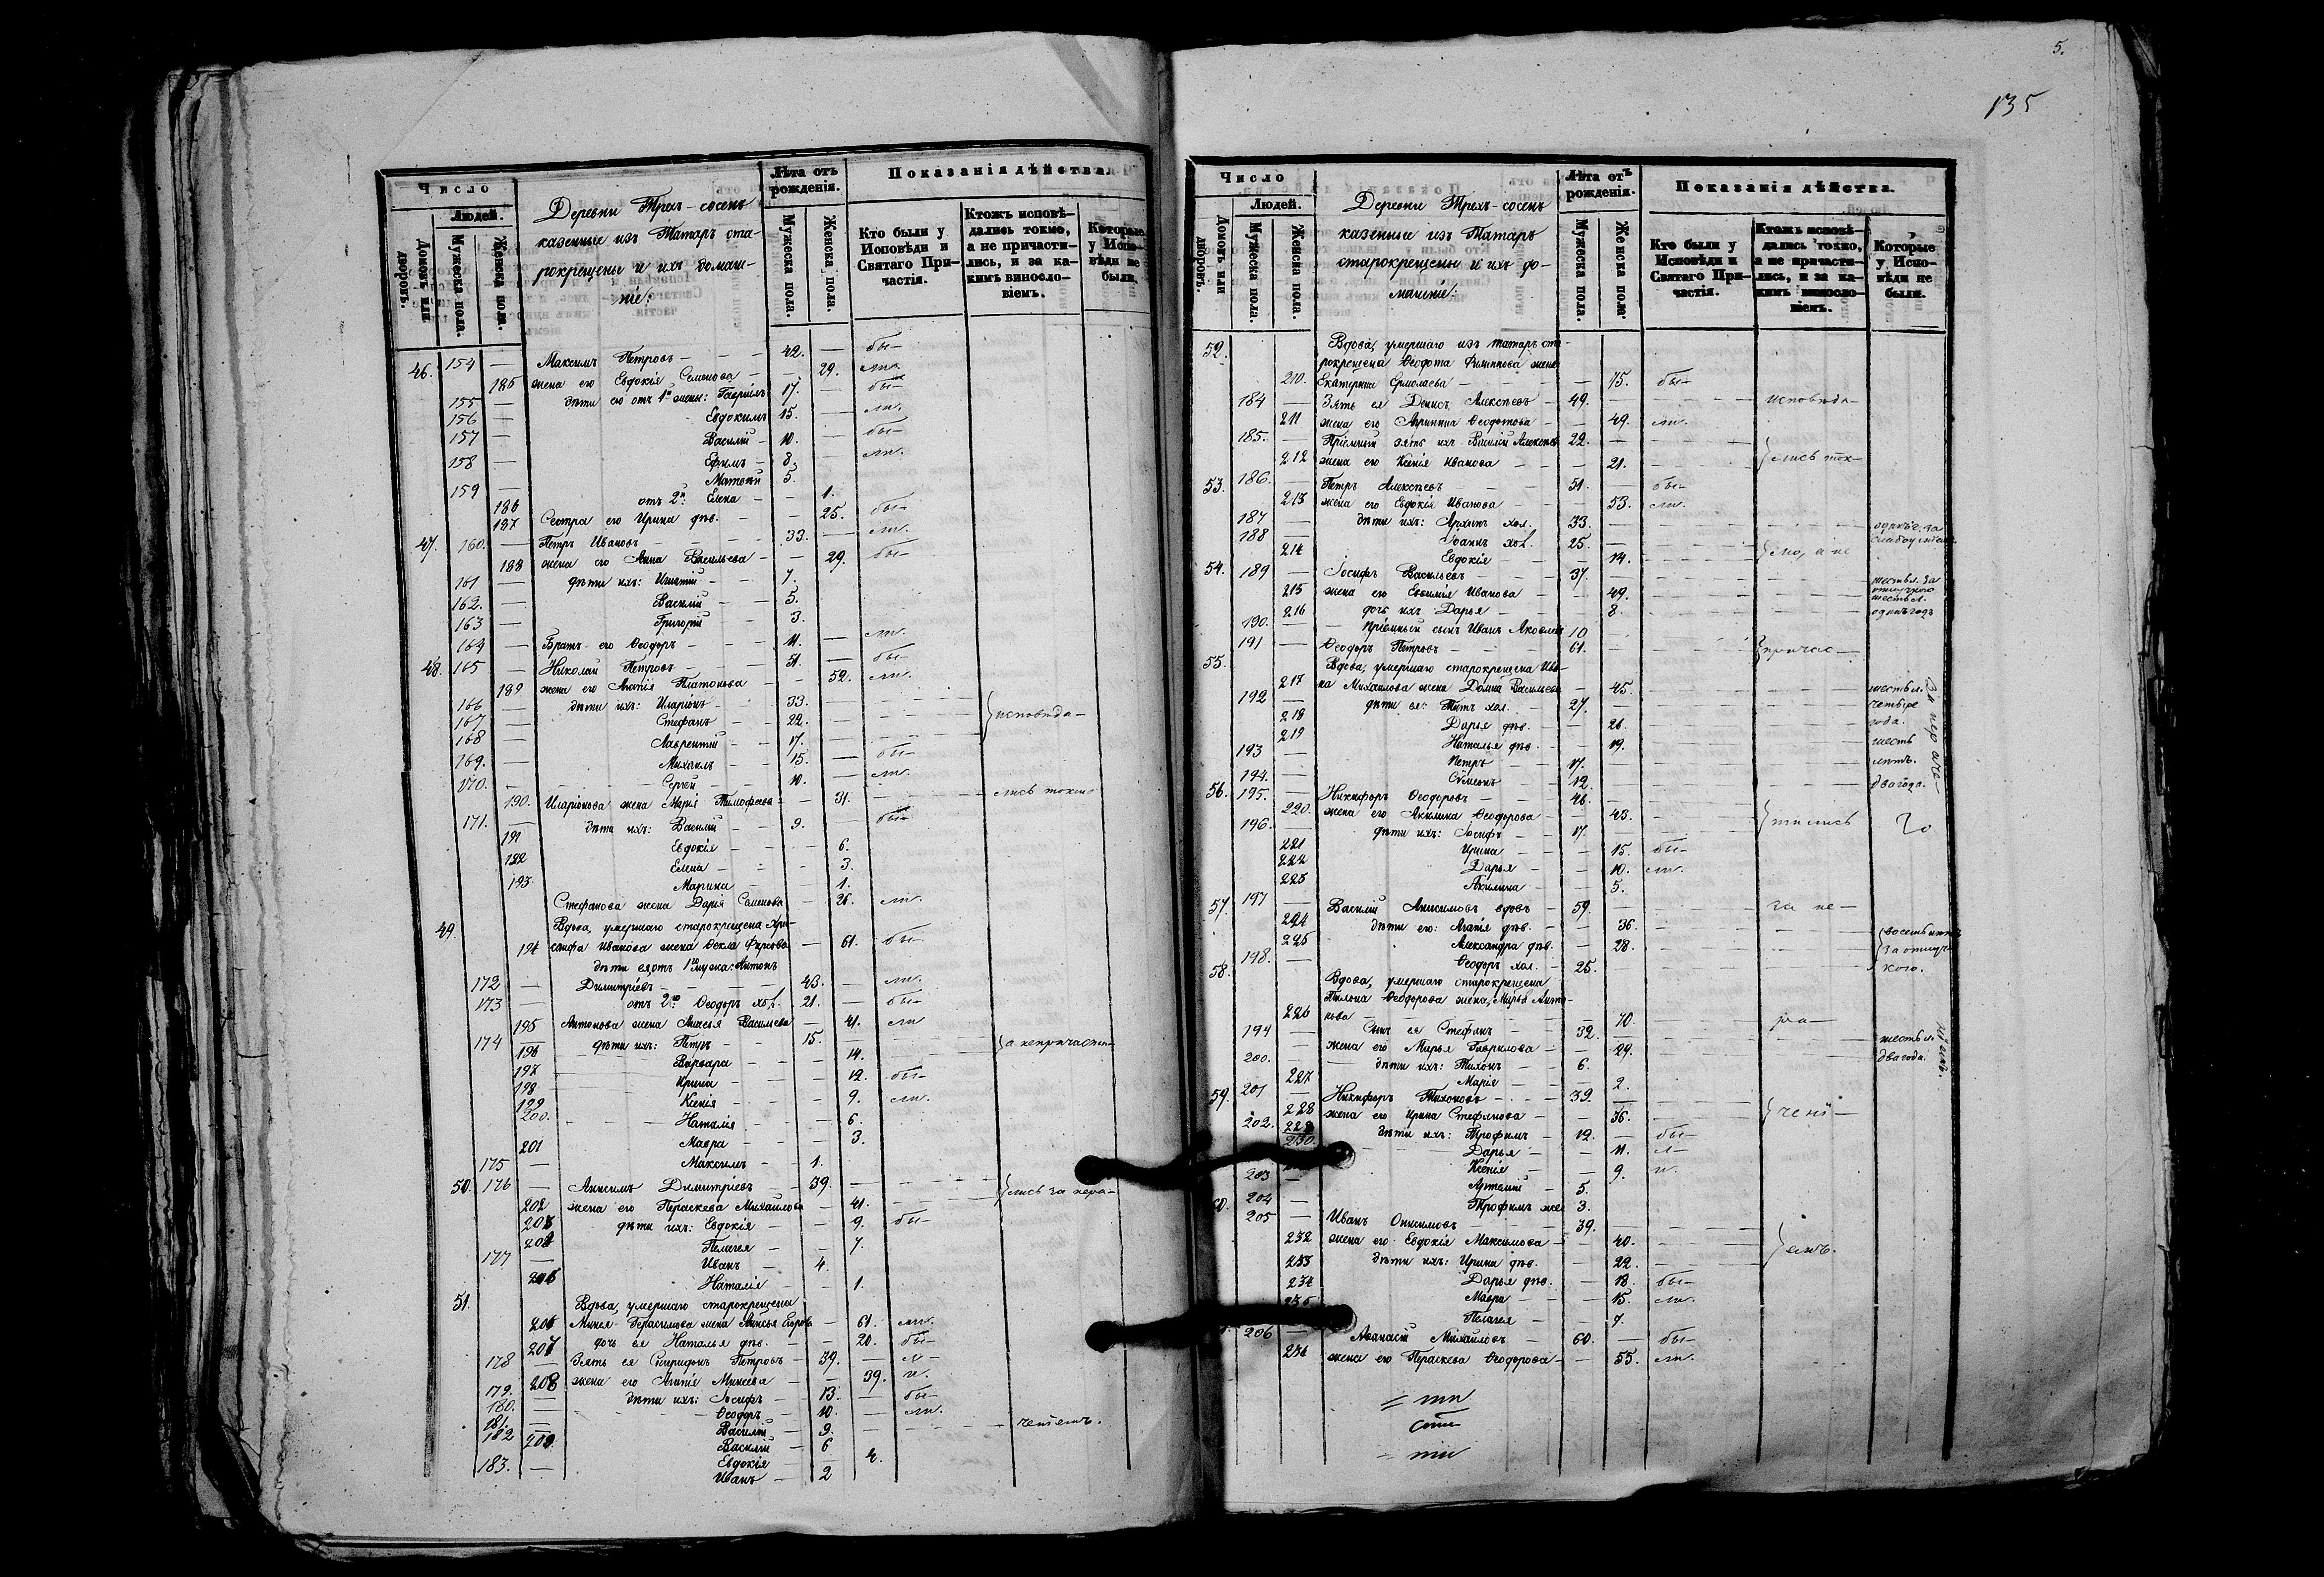 5.
135
Число
Людей.
Домовъ или дворовъ.
Мужеска пола.
Женска пола.
Деревни Трехъ-сосенъ
казенные изъ Татаръ ста-
рокрещены и ихъ домаш-
ніе:
Лѣта отъ рожденія.
Мужеска пола.
Женска пола.
Показанія дѣйства.
Кто были у Исповѣди и Святаго При-
частія.
Ктожъ исповѣ-
дались токмо,
а не причасти-
лись, и за ка-
кимъ винослo-
віемъ.
Которые
у Испо-
вѣди не
были.
46. 154 — Максимъ Петровъ — 42. — бы-
185 жена его Евдокія Семенова — 29. ли.
155 — дѣти его отъ 1й жены: Гавріилъ 17. — бы-
156 — Евдокимъ 15. — ли.
157 — Василій 10. — бы-
158 — Ефимъ 8. — ли.
159 — Матвѣй 5.
186 отъ 2й: Елена — 1.
187 Сестра его Ирина дѣв. — 25. бы-
47. 160. — Петръ Ивановъ — 33. — ли.
188 жена его Анна Васильева — 29. бы-
161 — дѣти ихъ: Игнатій — 7.
162. — Василій — 5.
163 — Григорій — 3.
164 — Братъ его Ѳеодоръ — 11. — ли.
48. 165 — Николай Петровъ — 51. — бы-
189 жена его Агапія Платонова — 52. ли.
166 — дѣти ихъ: Иларіонъ — 33.
167 — Стефанъ — 22. — исповѣда-
168 — Лаврентій — 17.
169. — Михаилъ — 15. — бы-
170. — Сергѣй — 10. — ли.
190. Иларіонова жена Марія Тимофеева — 31. — лись токм-
171. — дѣти ихъ: Василій — 9. — бы-
191 Евдокія — 6.
192 Елена — 3.
193. Марина — 1.
Стефанова жена Дарія Семенова — 26. ли.
49. Вдова, умершаго старокрещена Хри-
194 санфа Иванова жена Ѳекла Фирсова — 61. бы-
дѣти ея отъ 1го мужа: Антонъ
172 — Димитріевъ — 43. — ли.
173 — отъ 2го Ѳеодоръ хол. 21. — бы-
195 Антонова жена Анисья Васильева — 41. ли
174 — дѣти ихъ: Петръ — 15. — а не причасти-
196 Варвара — 14.
197 Ирина — 12. бы-
198 Ксенія — 9. ли.
199
200. Наталія — 6.
201 Мавра — 3.
175 — Максимъ — 1.
50. 176 — Анисимъ Димитріевъ — 39. — лись за нера-
202 жена его Параскева Михайлова — 41.
203 дѣти ихъ: Евдокія — 9. бы-
204 Пелагея — 7.
177 — Иванъ — 4.
205 Наталія — 1.
51. Вдова, умершаго старокрещена
206 Минея Герасимова жена Анисья Егорова — 61. ли.
207 дочь ея Наталья дѣв. — 20. бы-
178 — Зять ея Петровъ — 39. — л-
208 жена его Агапія Минеева — 39. и.
179. — дѣти ихъ: Іосифъ — 13. — бы-
180. — Ѳеодоръ — 10. — ли.
181. — Василій — 9. — ченіемъ.
182 Василій — 6
209. Евдокія — 4.
183. — Иванъ — 2
Число
Людей.
Домовъ или дворовъ.
Мужеска пола.
Женска пола.
Деревни Трехъ-сосенъ
казенные изъ Татаръ
старокрещены и ихъ до-
машніе:
Лѣта отъ рожденія.
Мужеска пола.
Женска пола.
Показанія дѣйства.
Кто были у Исповѣди и Святаго При-
частія.
Ктожъ исповѣ-
дались токмо,
а не причасти-
лись, и за ка-
кимъ винослo-
віемъ.
Которые
у Испо-
вѣди не
были.
52. Вдова, умершаго изъ татаръ ста-
рокрещена Ѳеодота Филиппова жена
210. Екатерина Ермолаева — 75. бы-
184 — Зять ея Денисъ Алексѣевъ — 49. — исповѣда-
211 жена его Агрипина Ѳеодотова — 49. ли.
185. — Пріемный зять ихъ Василій Алексѣевъ 22.
212 жена его Ксенія Иванова — 21. — лись ток-
53. 186. — Петръ Алексѣевъ — 51. — бы-
213 жена его Евдокія Иванова — 53. ли.
187 — дѣти ихъ: Архипъ хол. 33.
188 — Іоаннъ хол. 25.
214 Евдокія — 14. — мо, а не
54. 189 — Іосифъ Васильевъ — 37.
215 жена его Евѳимія Иванова — 49.
216 дочь ихъ Дарья — 8. одинъ годъ
190. — Пріемный сынъ Иванъ Яковлевъ 10
191 — Ѳеодоръ Петровъ — 61. — причас-
55. Вдова, умершаго старокрещена Ива-
217 на Михайлова жена Домна Васильева — 45. — шесть л.
192 — дѣти ея: Титъ хол. — 27. — четыре
218 Дарья дѣв. — 26. — года.
219 Наталья дѣв. — 19. — шесть
193 — Петръ — 17. — лѣтъ.
194. — Сѵмеонъ — 12. — два года.
56. 195. — Никифоръ Ѳеодоровъ — 46.
220. жена его Акилина Ѳеодорова — 43. — тились
196. — дѣти ихъ: Іосифъ — 17.
221 Ирина — 15. бы-
222 Дарья — 10. ли.
223 Акилина — 5.
57. 197 — Василій Анисимовъ вдовъ — 59. — за не-
224 дѣти его: Агапія дѣв. — 36.
225 Александра дѣв. — 28. — за отлуч-
198. — Ѳеодоръ хол. — 25. — кою.
58. Вдова, умершаго старокрещена
Тихона Ѳеодорова жена, Марья Анто-
226 нова — 70. — ра-
199 — Сынъ ея Стефанъ — 32. — шесть л.
жена его Марья Гаврилова — 29. — два года.
200. — дѣти ихъ: Тихонъ — 6.
227 Марія — 2.
59. 201 — Никифоръ Тихоновъ — 39.
228 жена его Ирина Стефанова — 36. — чені-
202. 229 дѣти ихъ: Трофимъ — 12. — бы-
230. Дарья — 11. л-
Ксенія — 9. и.
203 — Артемій — 5.
204 — Трофимъ же 3.
60. 205 — Иванъ Онисимовъ — 39.
232 жена его Евдокія Максимова — 40. — емъ.
233 дѣти ихъ: Ирина дѣв. — 22.
234 Дарья дѣв. — 18. бы-
235 Мавра — 15. ли.
Пелагея — 7.
206 — Аѳанасій Михайловъ — 60. — бы-
236 жена его Параскева Ѳеодорова — 55. ли.